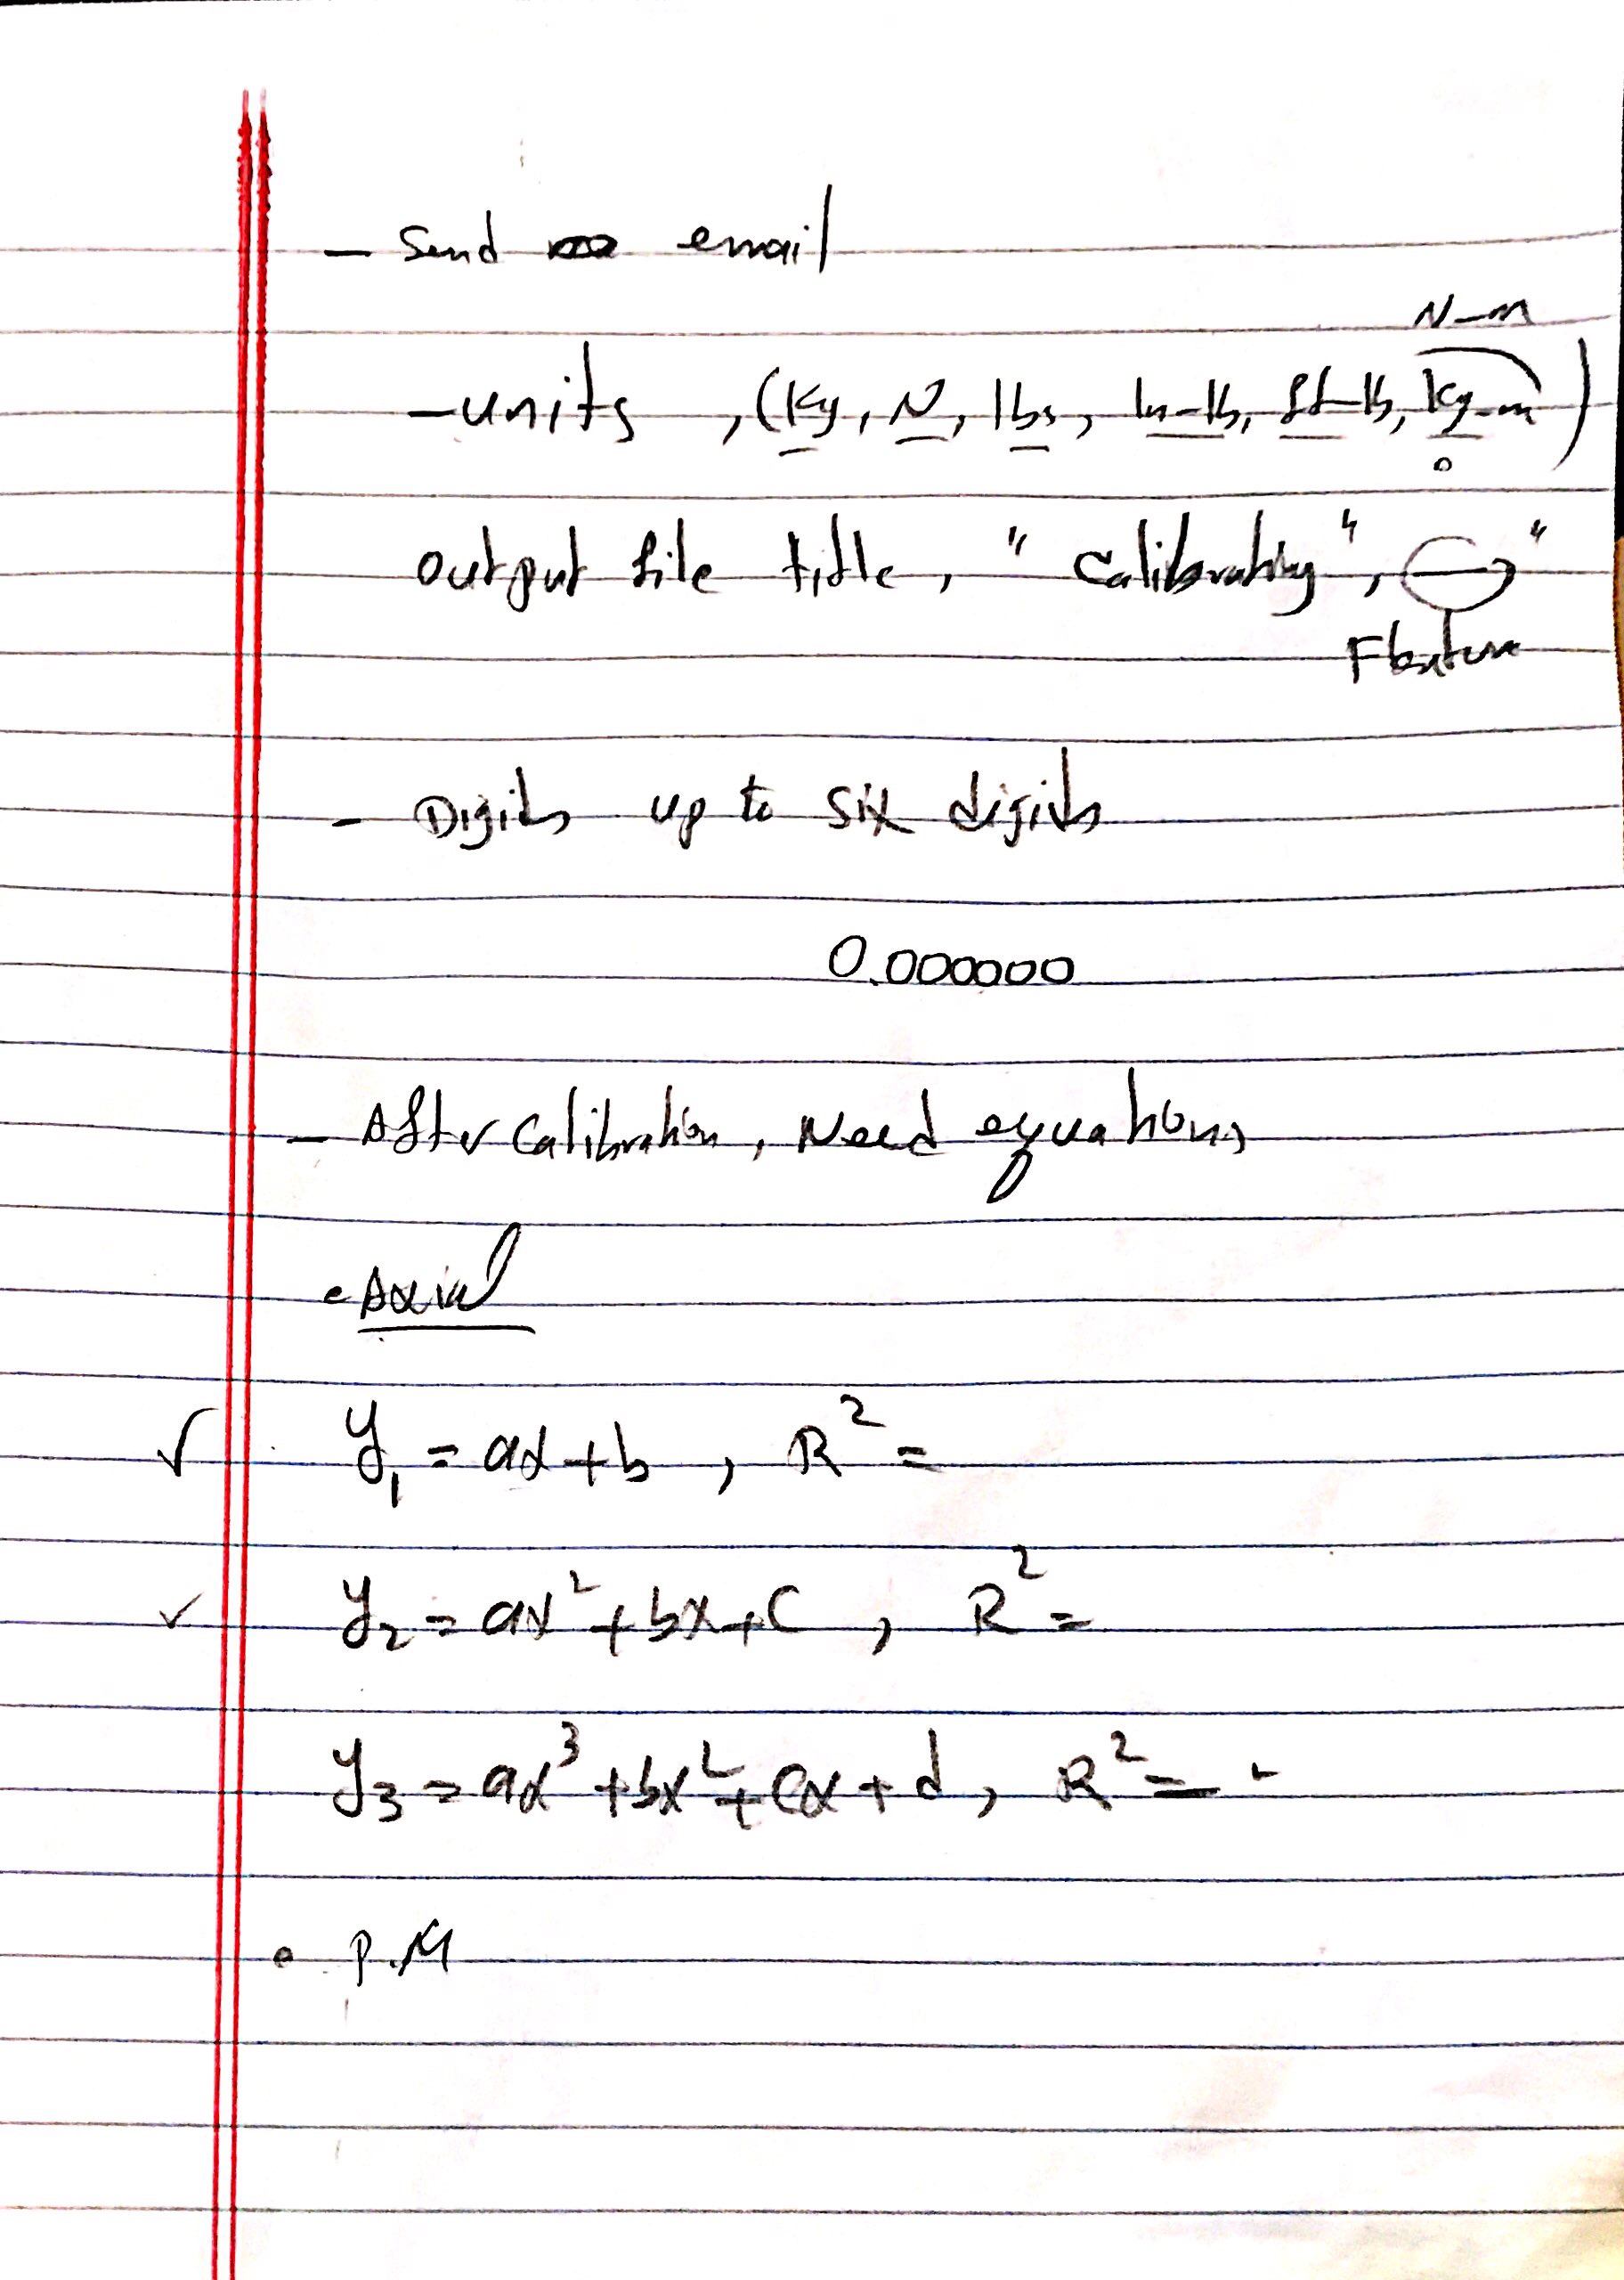 - Send email
N-m
- units , (Kg, N, lbs, In-lb, ft-lb, kg-m)
output file title, " Calibrating ", "
- Digits up to six digits
0.000000
- After Calibration, Need equations
• Axial
√ y₁ = ax + b , R² =
✓ y₂ = ax² + bx + C , R² =
y₃ = ax³ + bx² + Cx + d , R² =
• P.M